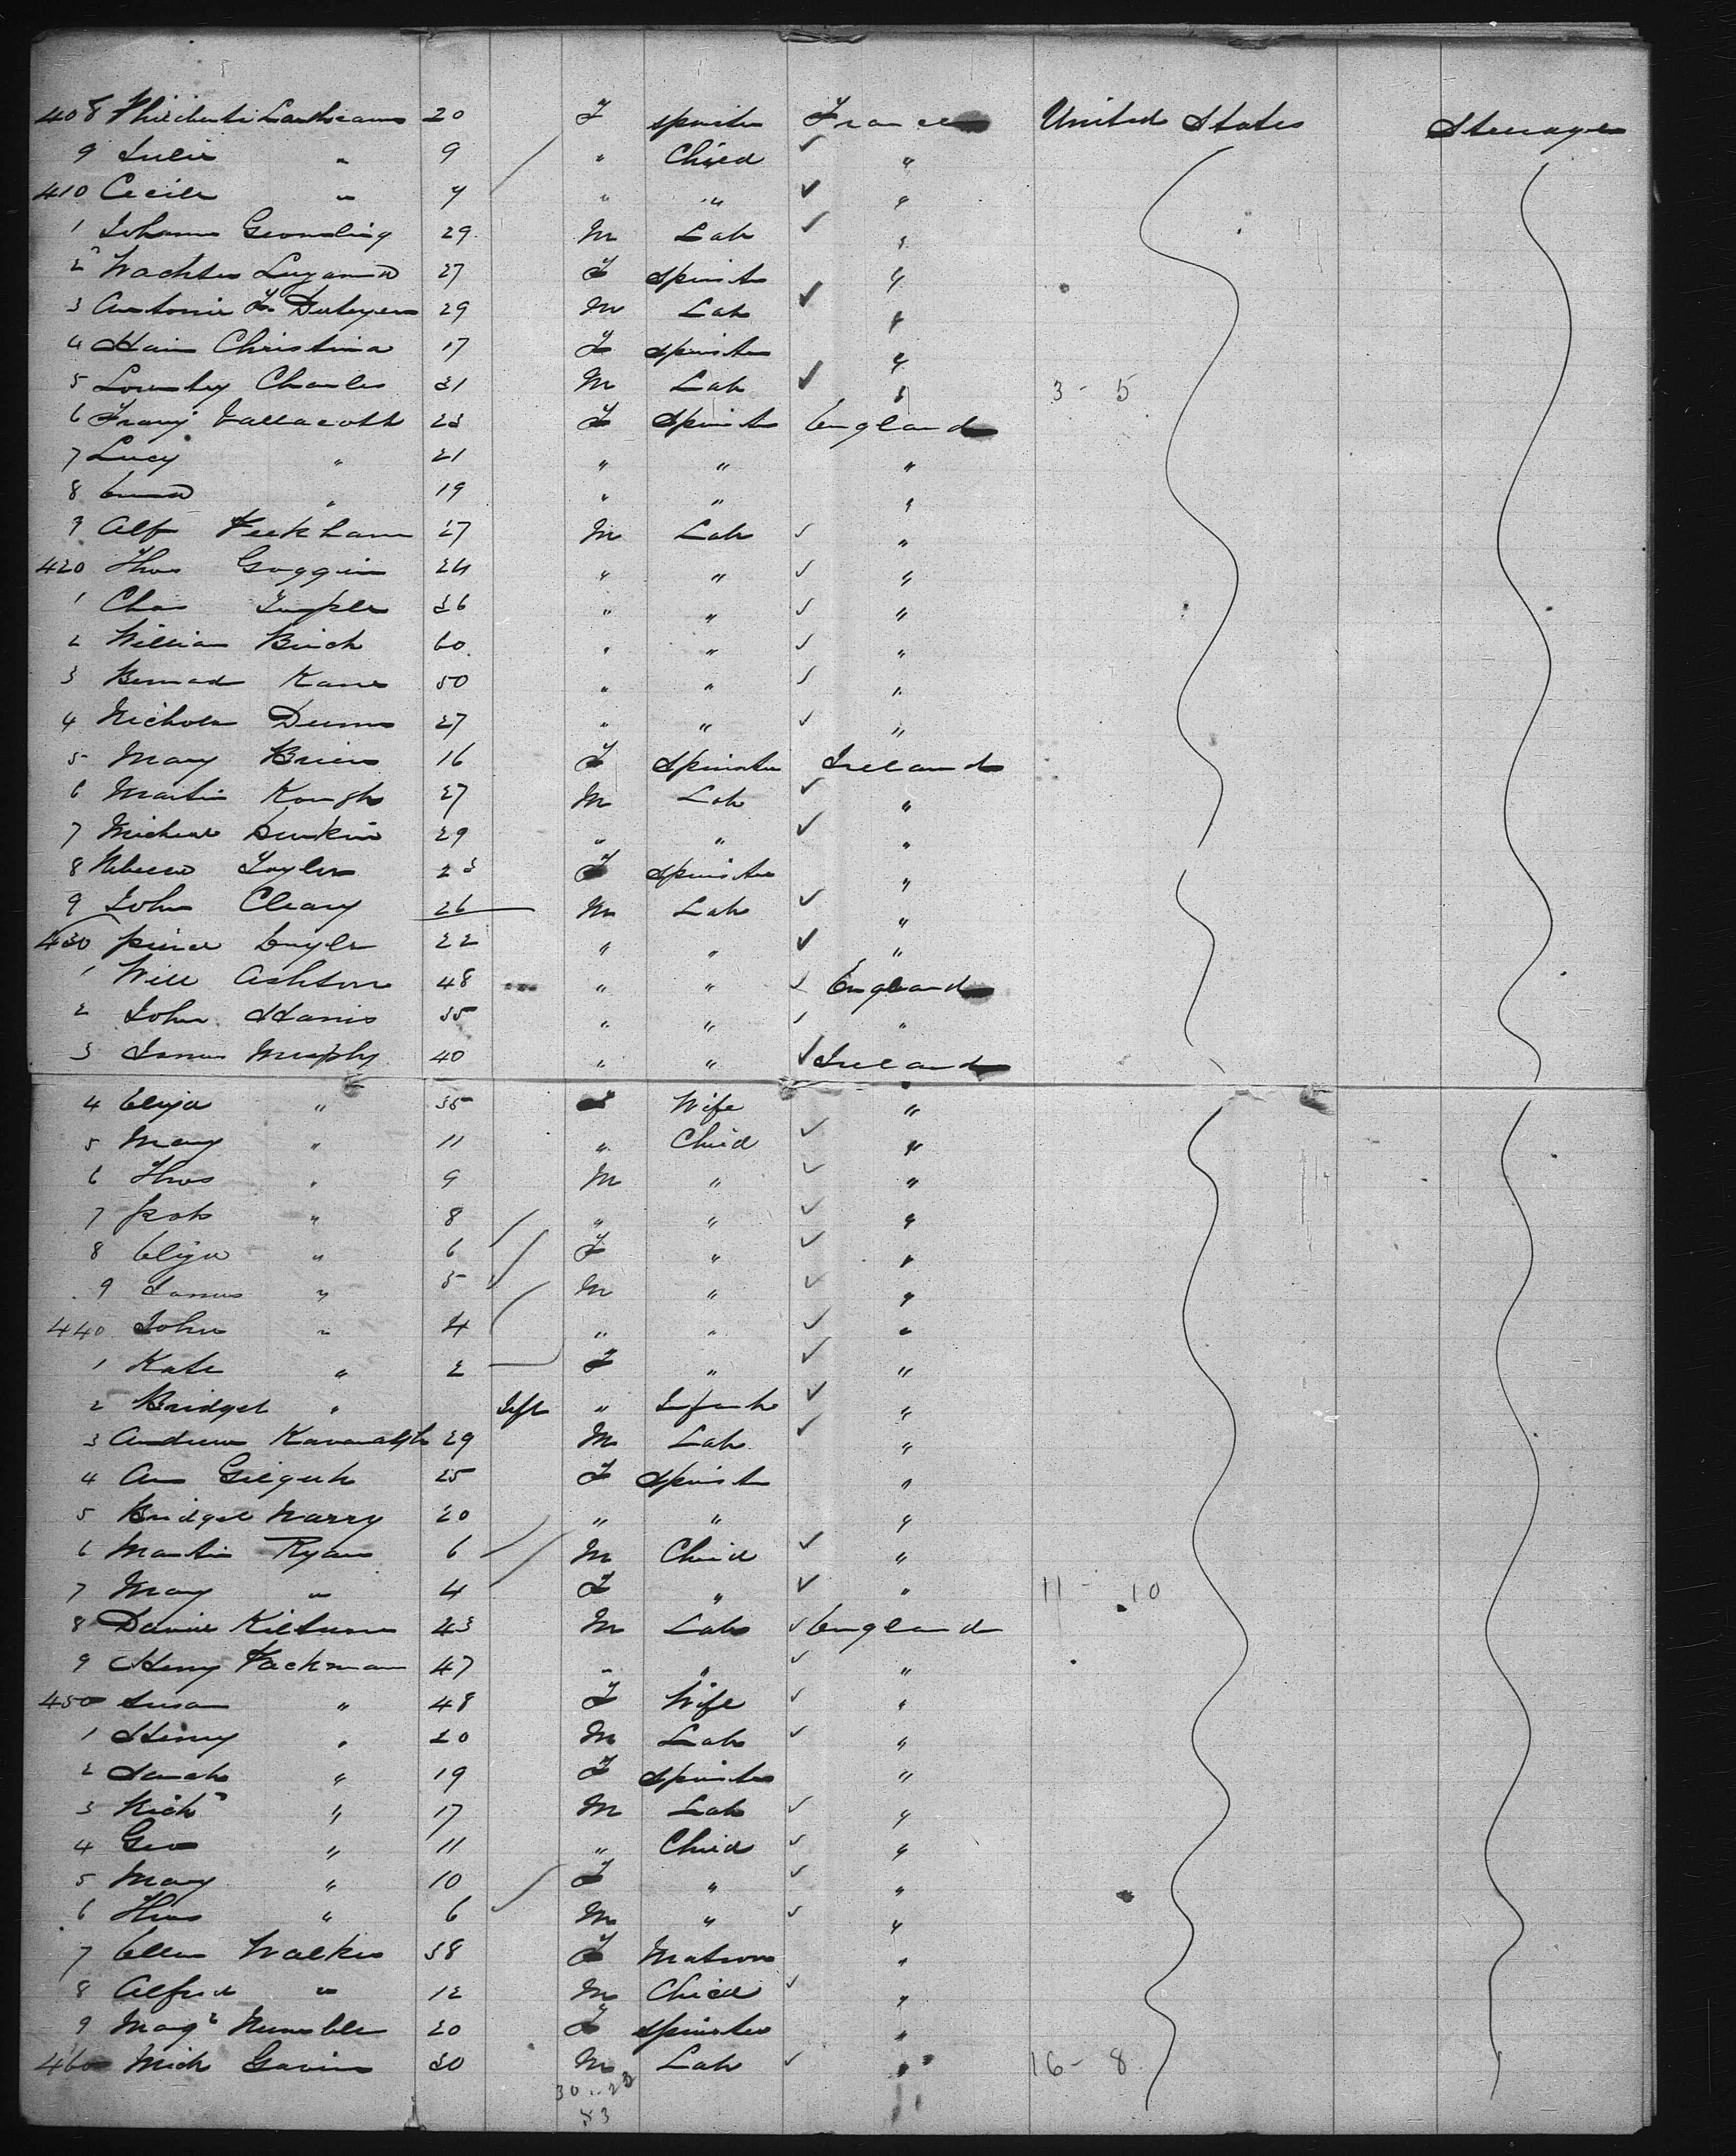 408 20 F spinster France United States Steerage
9 Julie " 9 " Child "
410 Cecile " 7 " " "
1 Johann 29 M Lab "
2 27 F spinster "
3 29 M Lab "
4 Christina 17 F spinster "
5 Charles 31 M Lab " 3 - 5
6 Vallacott 23 F Spinster England
7 Lucy " 21 " " "
8 Emma " 19 " " "
9 Alf Peckham 27 M Lab "
420 Thos Goggin 24 " " "
1 Chas 36 " " "
2 William Birch 60 " " "
3 Bernard Kane 50 " " "
4 Nicholas 27 " " "
5 Mary Brien 16 F Spinster Ireland
6 Martin Kough 27 M Lab "
7 Michael Durkin 29 " " "
8 Rebecca Taylor 23 F spinster "
9 John Cleary 26 M Lab "
430 22 " " "
1 Will Ashton 48 " " England
2 John Harris 35 " " "
3 James Murphy 40 " " Ireland
4 Eliza " 35 F Wife "
5 Mary " 11 " Child "
6 Thos " 9 M " "
7 " 8 " " "
8 Eliza " 6 F " "
9 James " 5 M " "
440 John " 4 " " "
1 Kate " 2 F " "
2 Bridget " Inft " Infant "
3 Andrew Kavanagh 29 M Lab "
4 Ann 25 F Spinster "
5 Bridget 20 " " "
6 Martin Ryan 6 M Child "
7 Mary " 4 F " " 11 - 10
8 43 M Lab England
9 Henry Packman 47 " " "
450 Susan " 48 F Wife "
1 Henry " 20 M Lab "
2 Sarah " 19 F Spinster "
3 Richd " 17 M Lab "
4 Geo " 11 " Child "
5 Mary " 10 F " "
6 Thos " 6 M " "
7 Ellen Walker 38 F Matron "
8 Alfred " 12 M Child "
9 Margt Humble 20 F spinster "
460 Mich Gavin 30 M Lab " 16 - 8
30 .. 23
53